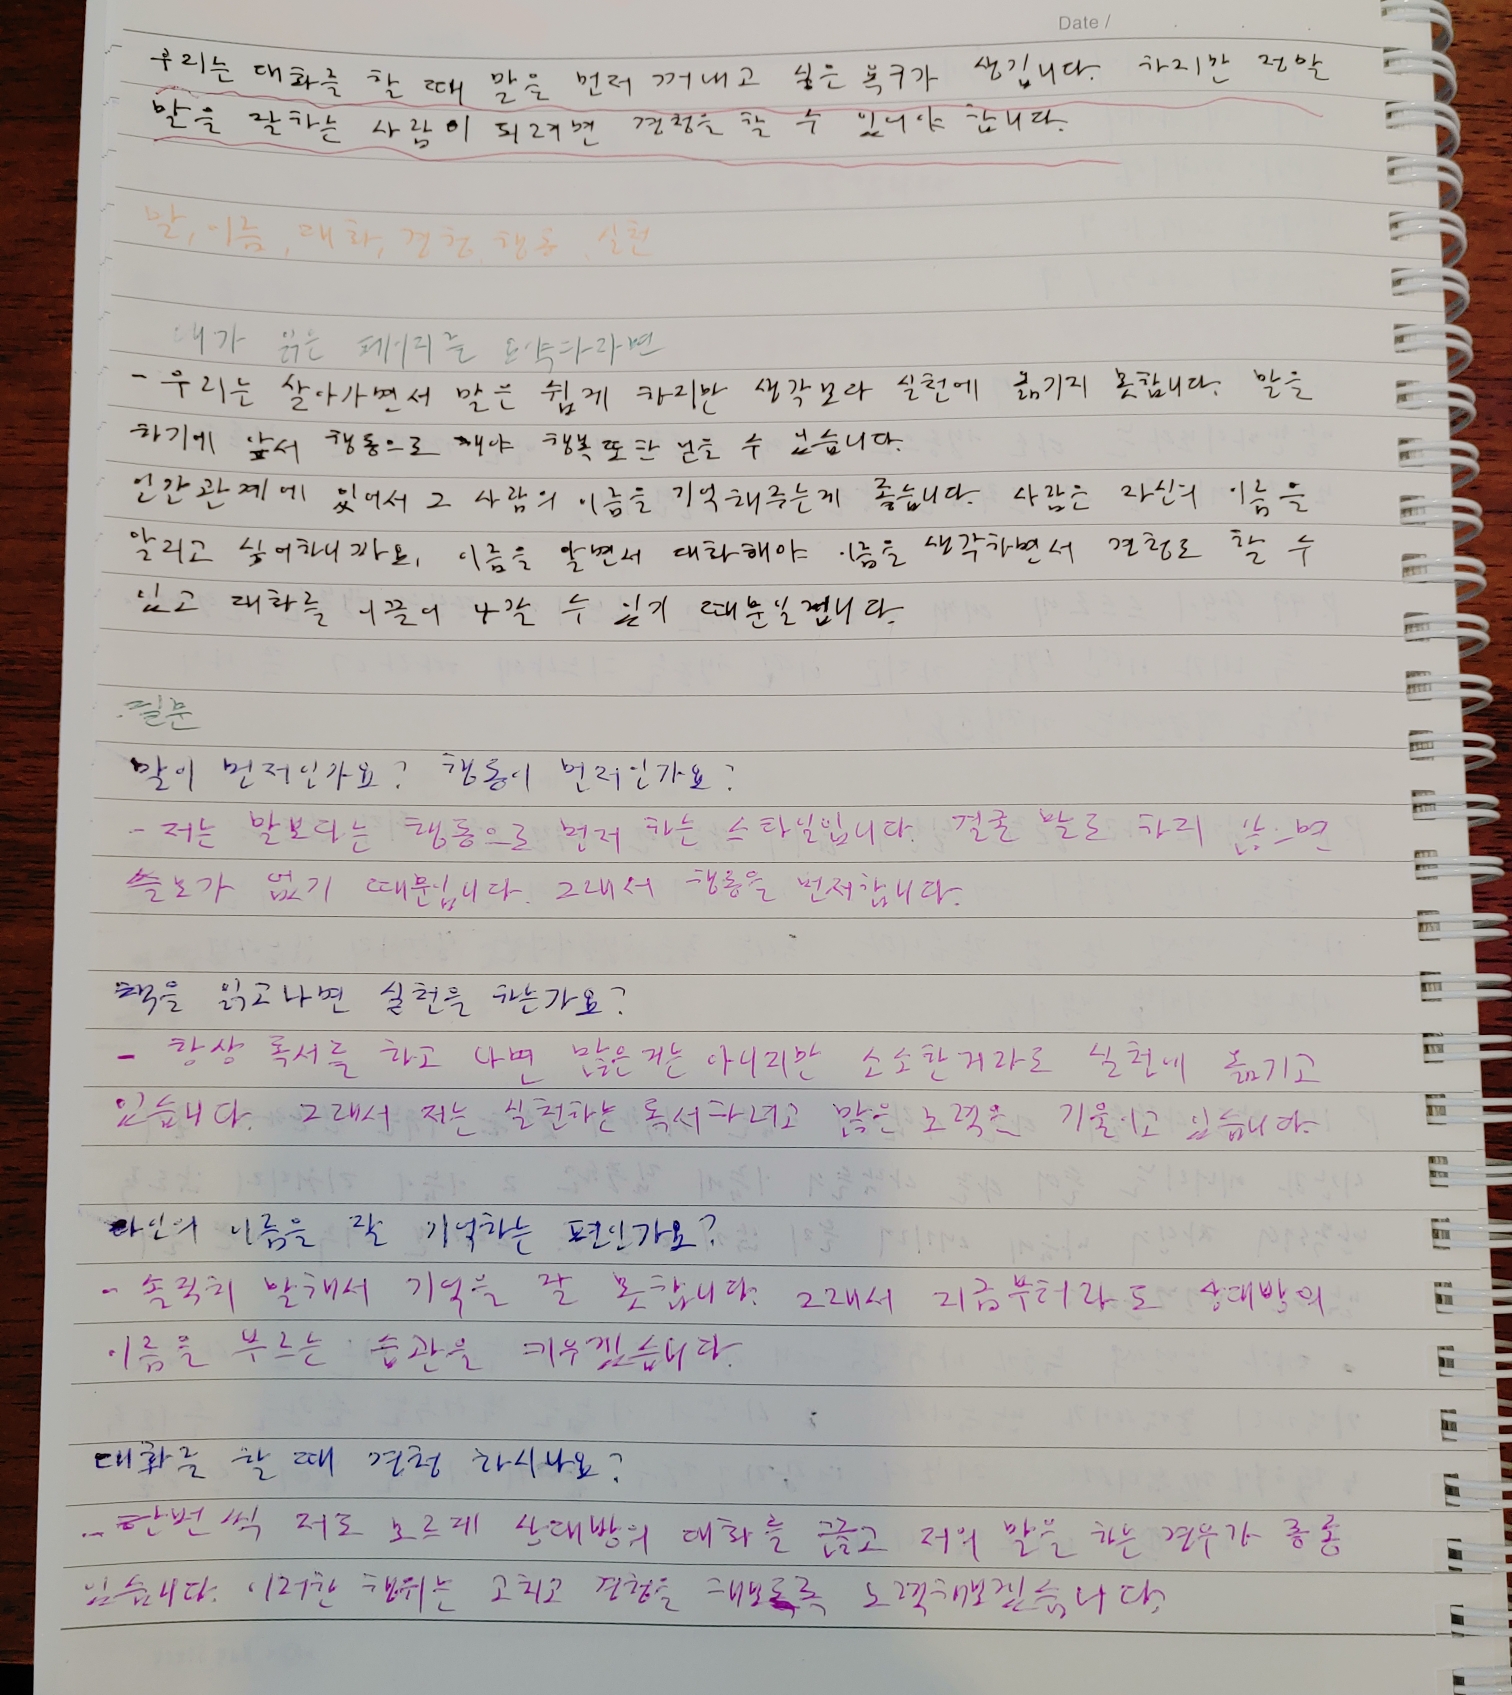 Date /
우리는 대화를 할 때 말을 먼저 꺼내고 싶은 욕구가 생깁니다. 하지만 정말
말을 잘하는 사람이 되려면 경청을 할 수 있어야 합니다.
말, 이름, 대화, 경청, 행동, 실천
내가 읽은 페이지를 요약하라면
- 우리는 살아가면서 말은 쉽게 하지만 생각보다 실천에 옮기지 못합니다. 말을
하기에 앞서 행동으로 해야 행복 또한 얻을 수 있습니다.
인간관계에 있어서 그 사람의 이름을 기억해주는게 좋습니다. 사람은 자신의 이름을
알리고 싶어하니까요. 이름을 알면서 대화해야 이름을 생각하면서 경청도 할 수
있고 대화를 이끌어 나갈 수 있기 때문일겁니다.
질문
말이 먼저인가요? 행동이 먼저인가요?
- 저는 말보다는 행동으로 먼저 하는 스타일입니다. 결국 말로 하지 않으면
쓸모가 없기 때문입니다. 그래서 행동을 먼저합니다.
책을 읽고나면 실천을 하는가요?
- 항상 독서를 하고 나면 많은거는 아니지만 소소한거라도 실천에 옮기고
있습니다. 그래서 저는 실천하는 독서하려고 많은 노력은 기울이고 있습니다.
타인의 이름을 잘 기억하는 편인가요?
- 솔직히 말해서 기억을 잘 못합니다. 그래서 지금부터라도 상대방의
이름을 부르는 습관을 키우겠습니다.
대화를 할 때 경청 하시나요?
- 한번씩 저도 모르게 상대방의 대화를 끊고 저의 말을 하는 경우가 종종
있습니다. 이러한 행위는 고치고 경청을 해보도록 노력해보겠습니다.